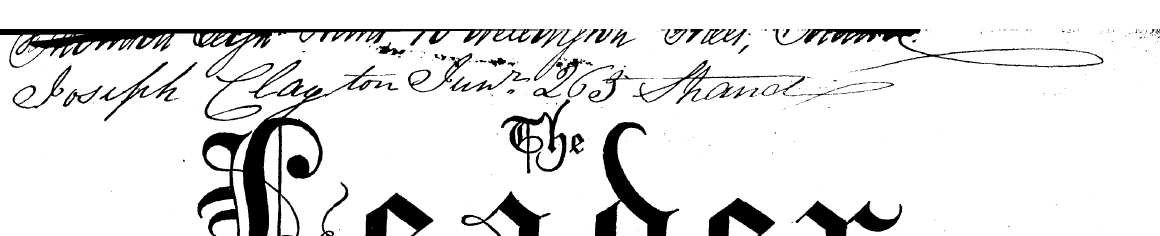 Wellington Street, Strand
Joseph Clayton Junr. 265 Strand
The
Leader